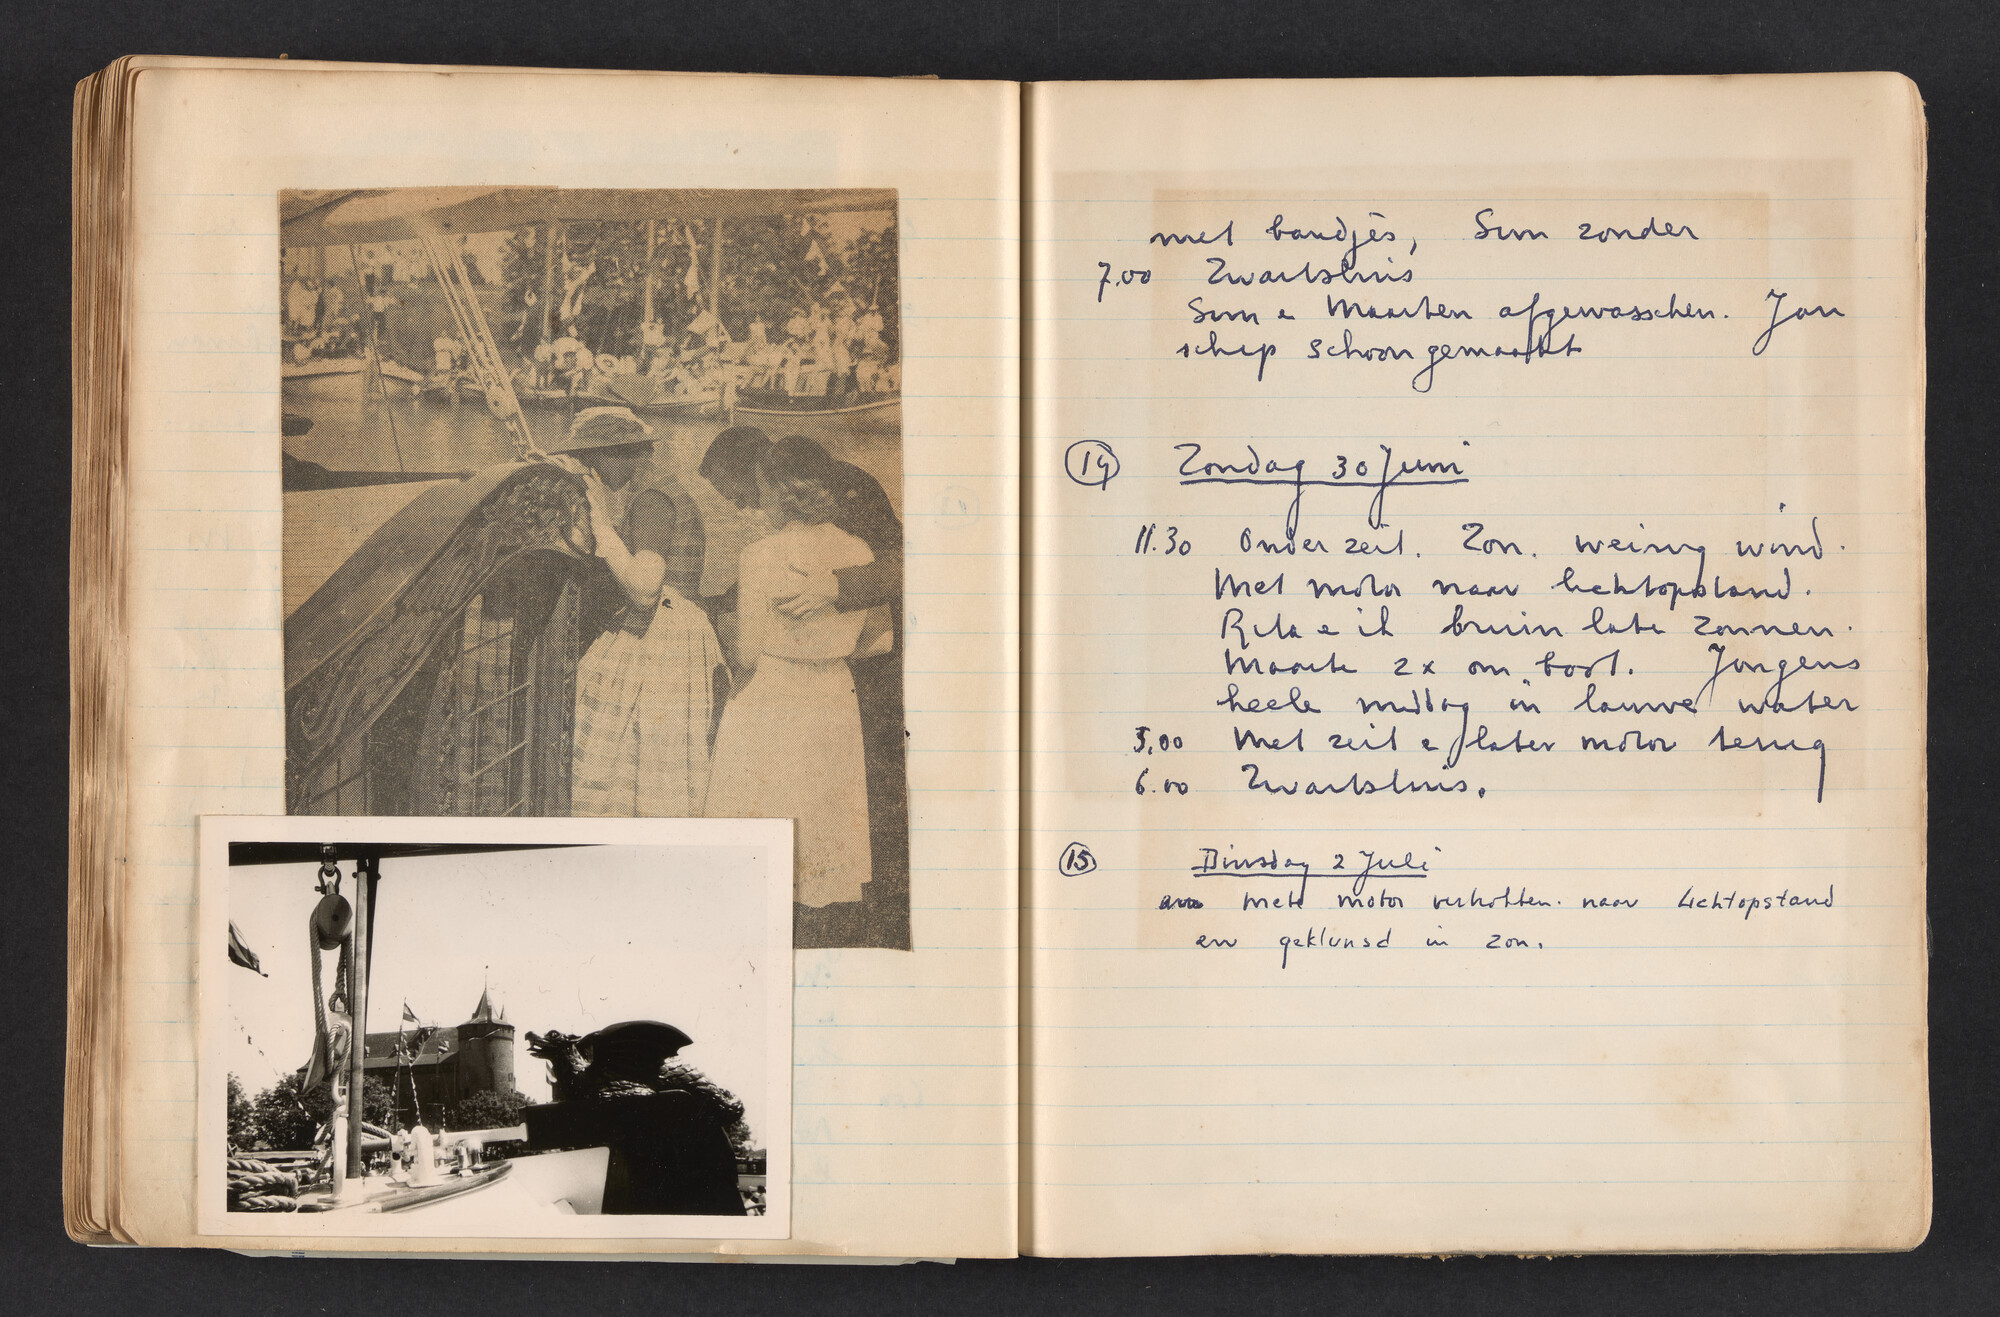 met bandjes, Sun zonder
7.00 Zwartsluis
Sun e Maarten afgewasschen. Jan
schip schoongemaakt
14 Zondag 30 Juni
11.30 Onder zeil. Zon. weinig wind.
Met motor naar lichtopstand.
Rita e ik bruin late zonnen.
Maarte 2x om boot. Jongens
heele middag in lauwe water
5.00 Met zeil e later motor terug
6.00 Zwartsluis.
15 Dinsdag 2 Juli
Mete motor naar Lichtopstand
en geklunsd in zon.